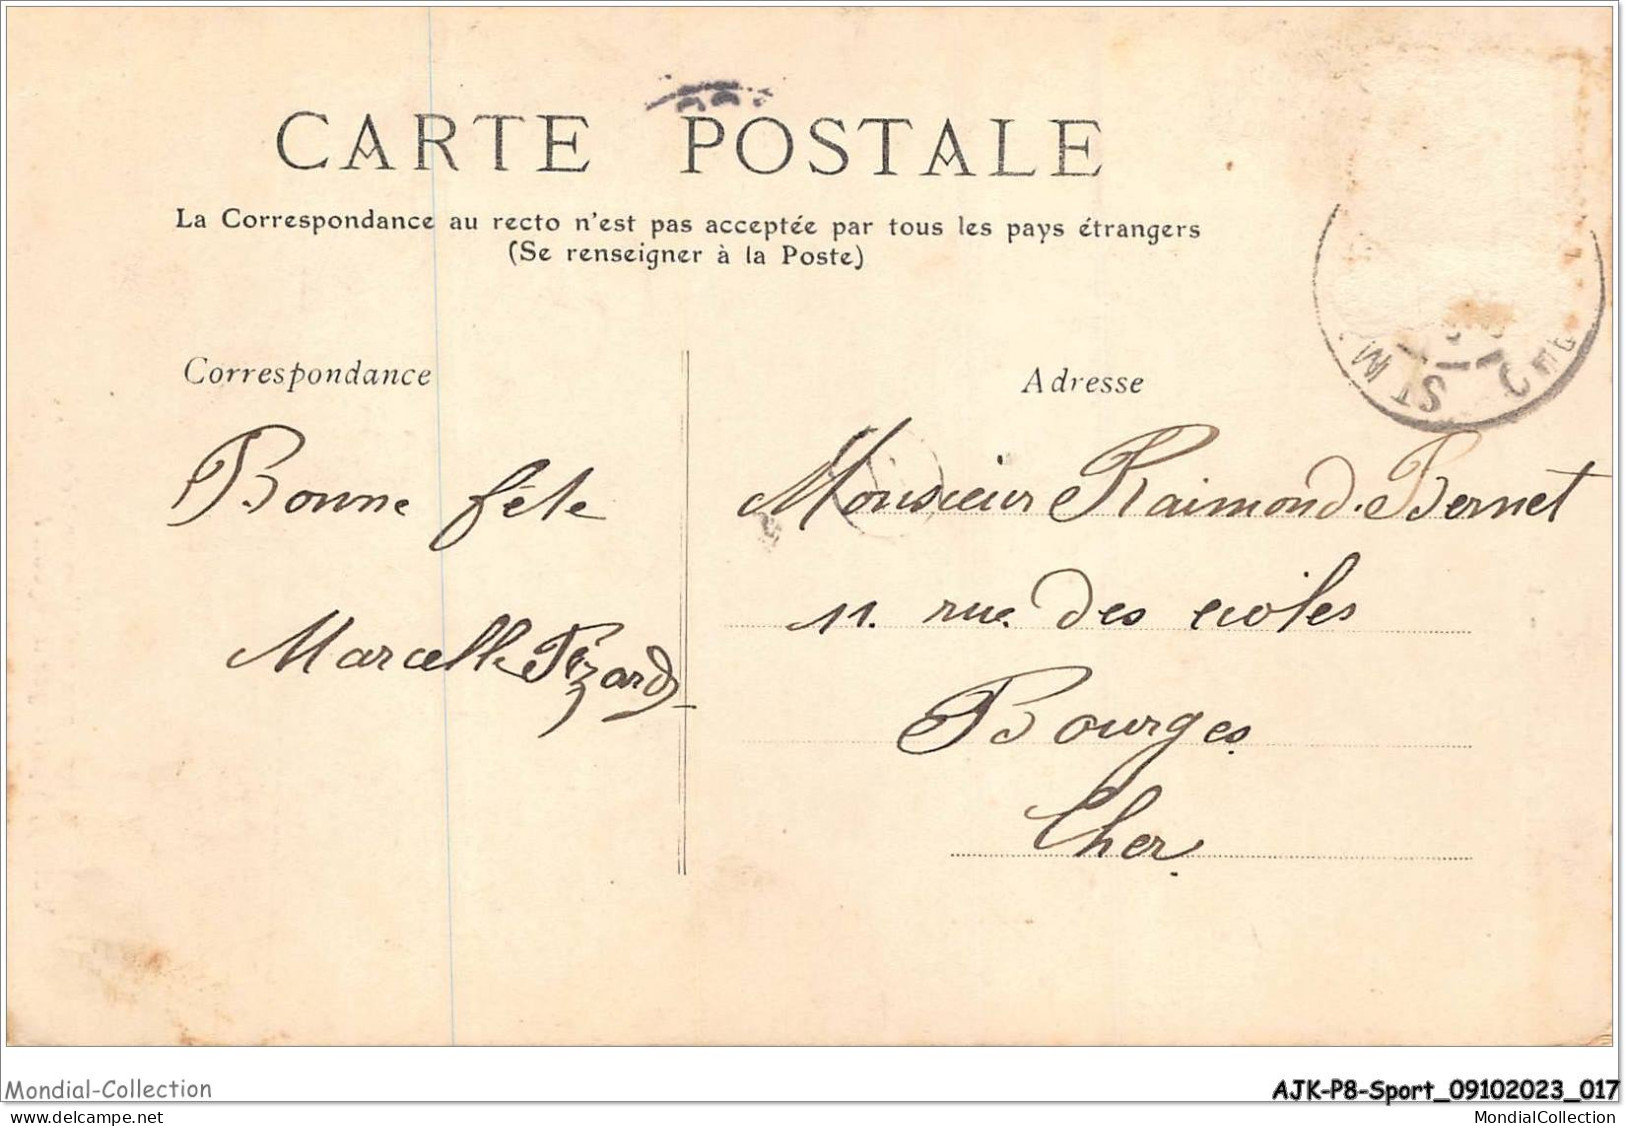 CARTE POSTALE
La Correspondance au recto n'est pas acceptée par tous les pays étrangers
(Se renseigner à la Poste)
Correspondance
Bonne fête
Marcelle Pézard
Adresse
Monsieur Raimond Bernet
11. rue des écoles
Bourges
Cher
ST
Mondial-Collection
AJK-P8-Sport_09102023_017
delcampe.net
MondialCollection